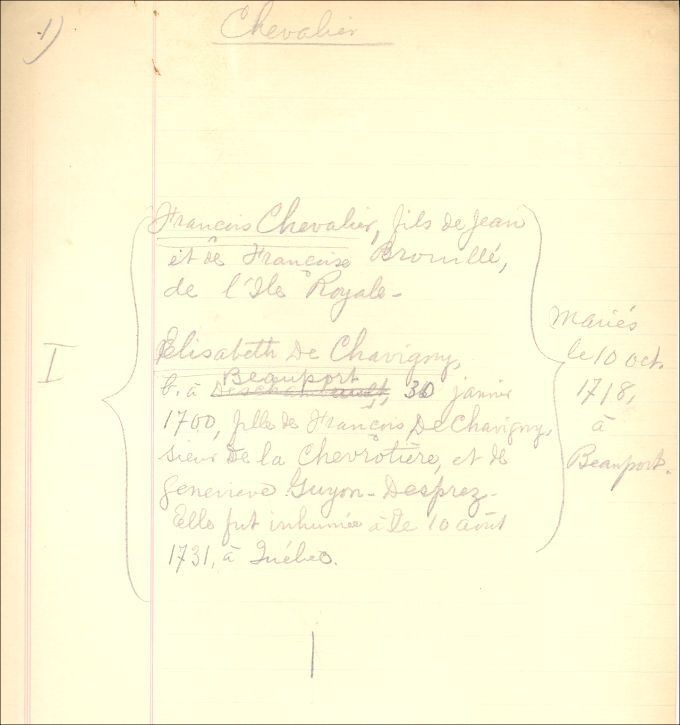 1)
Chevalier
François Chevalier, fils de Jean
et de Françoise Brouillé,
de l'Ile Royale-
I
Elisabeth De Chavigny,
b. à Deschambault, Beauport 30 janvier
1700, fille de François De Chavigny,
sieur De la Chevrotière, et de
Genevieve Guyon-Desprez-
Elle fut inhumée à le 10 août
1731, à Québec.
Mariés
le 10 oct.
1718,
à
Beauport.